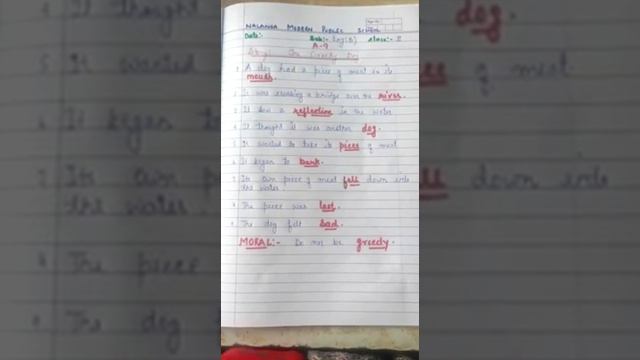 NALANDA MODERN PUBLIC SCHOOL
Date:- Sub:- Eng(B) Class:- II
A-9
Story:- The Greedy Dog
1. A dog had a piece of meat in its
mouth.
2. It was crossing a bridge over the river.
3. It saw a reflection in the water
4. It thought it was another dog.
5. It wanted to take its piece of meat
6. It began to bark.
7. Its own piece of meat fell down into
the water.
8. The piece was lost.
9. The dog felt sad.
MORAL:- Do not be greedy.